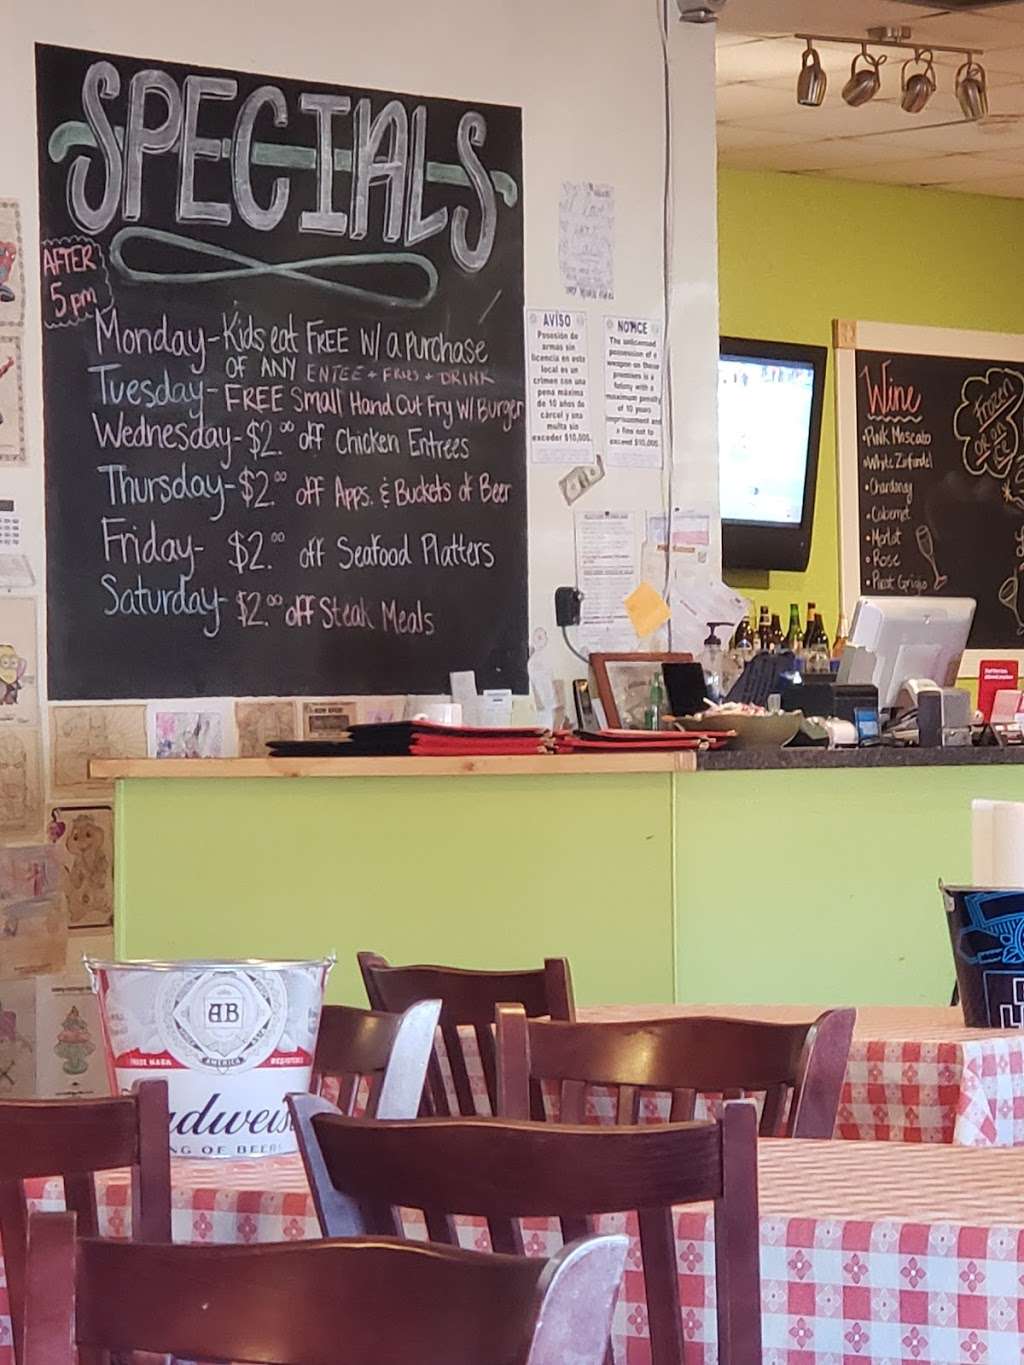 SPECIALS
AFTER
5 pm
Monday - Kids eat FREE W/ a purchase
OF ANY ENTEE + FRIES + DRINK
Tuesday - FREE Small Hand Cut Fry W/ Burger
Wednesday - $2.00 off Chicken Entrees
Thursday - $2.00 off Apps. & Buckets of Beer
Friday - $2.00 off Seafood Platters
Saturday - $2.00 off Steak Meals
AVISO
Posesión de
armas sin
licencia en este
local es un
crimen con una
pena máxima
de 10 años de
cárcel y una
multa sin
exceder $10,000.
NOTICE
The unlicensed
possession of a
weapon on these
premises is a
felony with a
maximum penalty
of 10 years
imprisonment and
a fine not to
exceed $10,000.
Wine
• Pink Moscato
• White Zinfandel
• Chardonay
• Cabernet
• Merlot
• Rose
• Pinot Grigio
Frozen
or on
ICE
AB
TRADE MARK
AMERICA
REGISTERED
udweis
NG OF BEERS